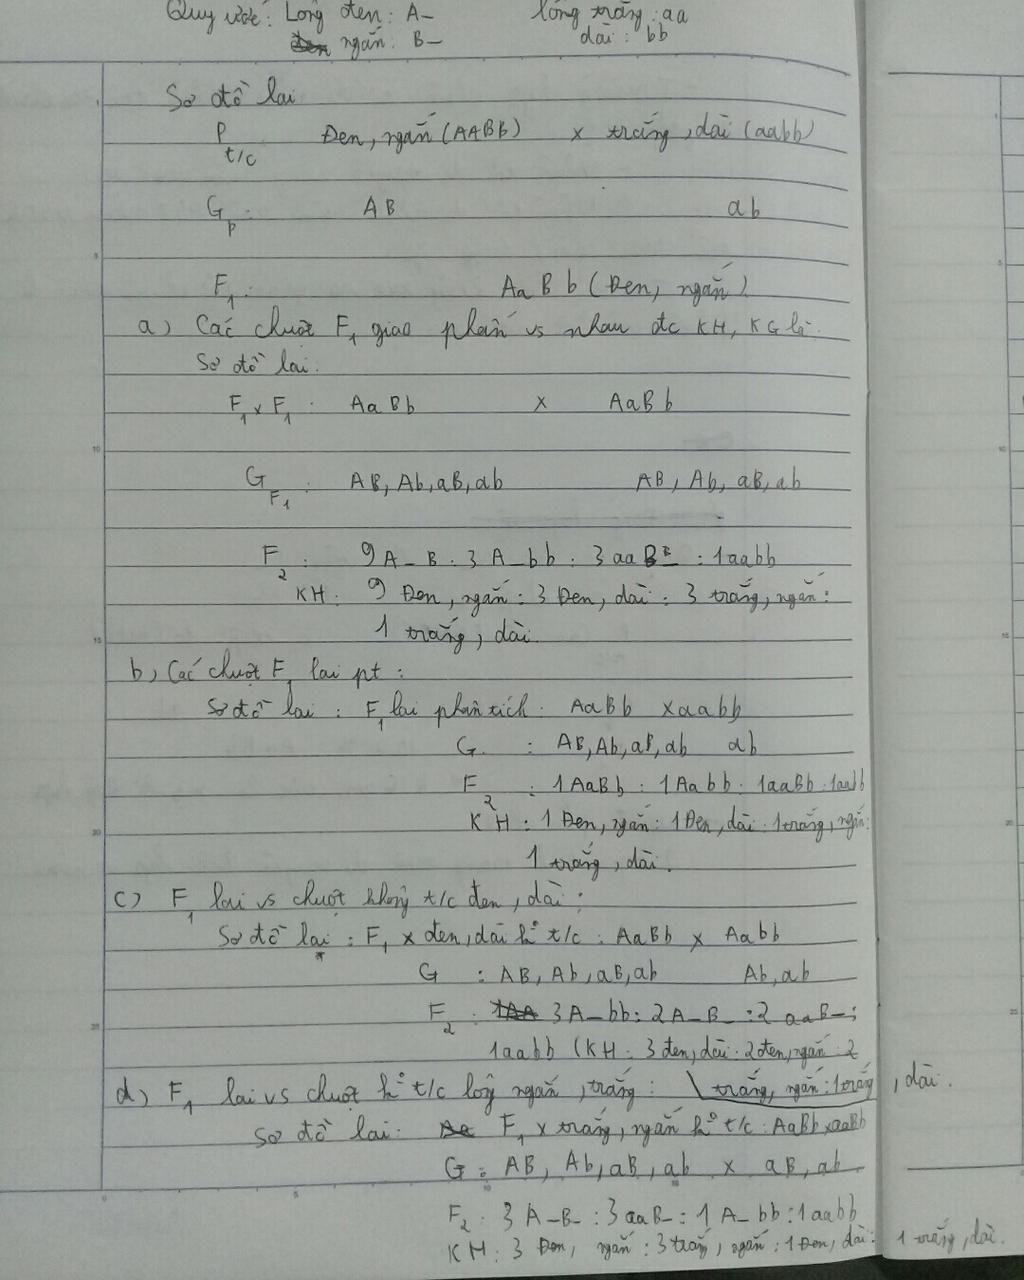 Quy ước: Lông đen: A_ lông trắng: aa
ngắn: B_ dài: bb
Sơ đồ lai
P t/c Đen, ngắn (AABB) x trắng, dài (aabb)
G P: AB ab
F1: AaBb (Đen, ngắn)
a) Các chuột F1 giao phấn vs nhau đc KH, KG là:
Sơ đồ lai:
F1 x F1: AaBb x AaBb
G F1: AB, Ab, aB, ab AB, Ab, aB, ab
F2: 9A_B_: 3A_bb: 3aaB_: 1aabb
KH: 9 Đen, ngắn: 3 Đen, dài: 3 trắng, ngắn:
1 trắng, dài.
b) Các chuột F1 lai pt:
Sơ đồ lai: F1 lai phân tích: AaBb x aabb
G: AB, Ab, aB, ab ab
F2: 1AaBb: 1Aabb: 1aaBb: 1aabb
KH: 1 Đen, ngắn: 1 Đen, dài: 1 trắng, ngắn:
1 trắng, dài.
c) F1 lai vs chuột không t/c đen, dài:
Sơ đồ lai: F1 x đen, dài k° t/c: AaBb x Aabb
G: AB, Ab, aB, ab Ab, ab
F2: 3A_bb: 2A_B_: 2aaB_:
1aabb (KH: 3 đen, dài: 2 đen, ngắn: 2
trắng, ngắn: 1 trắng, dài.
d) F1 lai vs chuột k° t/c lông ngắn, trắng:
Sơ đồ lai: F1 x trắng, ngắn k° t/c: AaBb x aaBb
G: AB, Ab, aB, ab x aB, ab
F2: 3A_B_: 3aaB_: 1A_bb: 1aabb
KH: 3 Đen, ngắn: 3 trắng, ngắn: 1 Đen, dài: 1 trắng, dài.